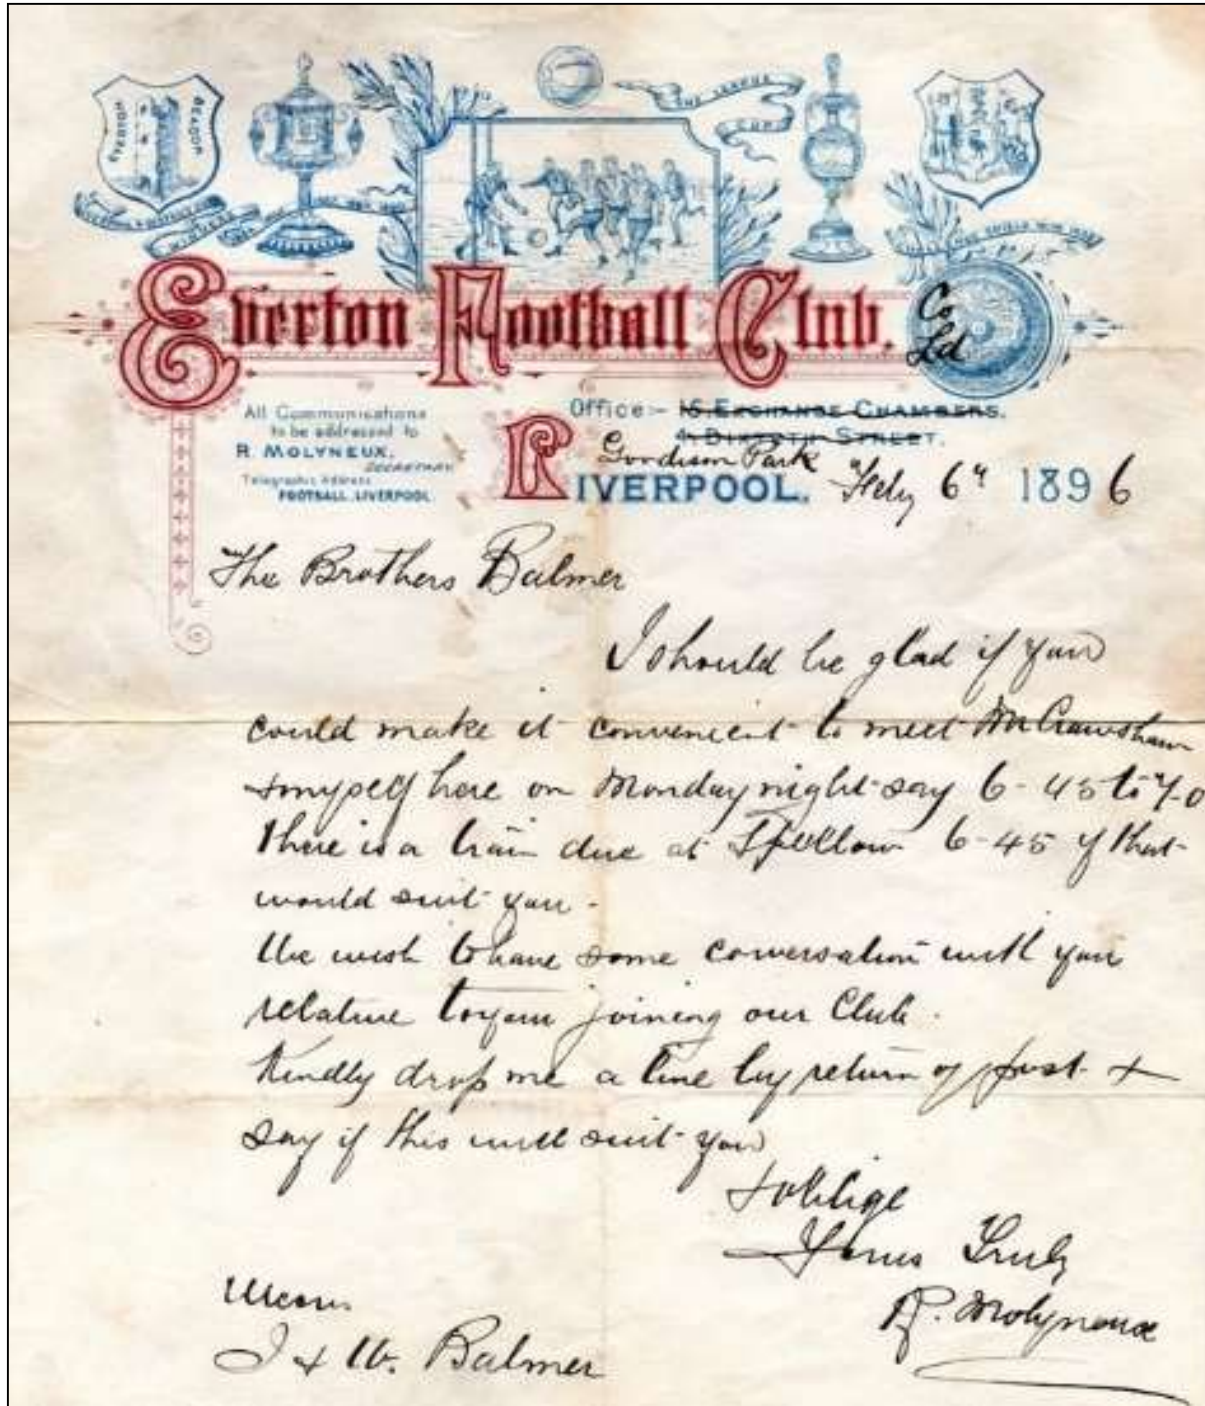 EVERTON BEACON
THE LEAGUE
CUP
Everton Football Club. Co
Ld
All Communications
to be addressed to
R. MOLYNEUX.
SECRETARY
Telegraphic Address
FOOTBALL, LIVERPOOL.
Office:- 16. EXCHANGE CHAMBERS.
STREET.
Goodison Park
LIVERPOOL. Feby 6th 1896
The Brothers Balmer
I should be glad if you
could make it convenient to meet Mr Crawshaw
& myself here on Monday night say 6-45 to 7-0
There is a train due at Spellow 6-45 if that
would suit you -
We wish to have some conversation with you
relative to your joining our Club.
Kindly drop me a line by return of post &
say if this will suit you
& oblige
Yours Truly
R. Molyneux
Messrs
J & W. Balmer